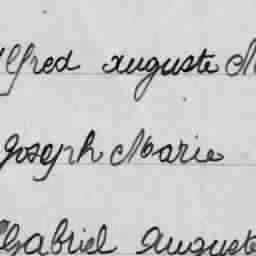 Alfred auguste M
Joseph Marie
Gabriel Auguste